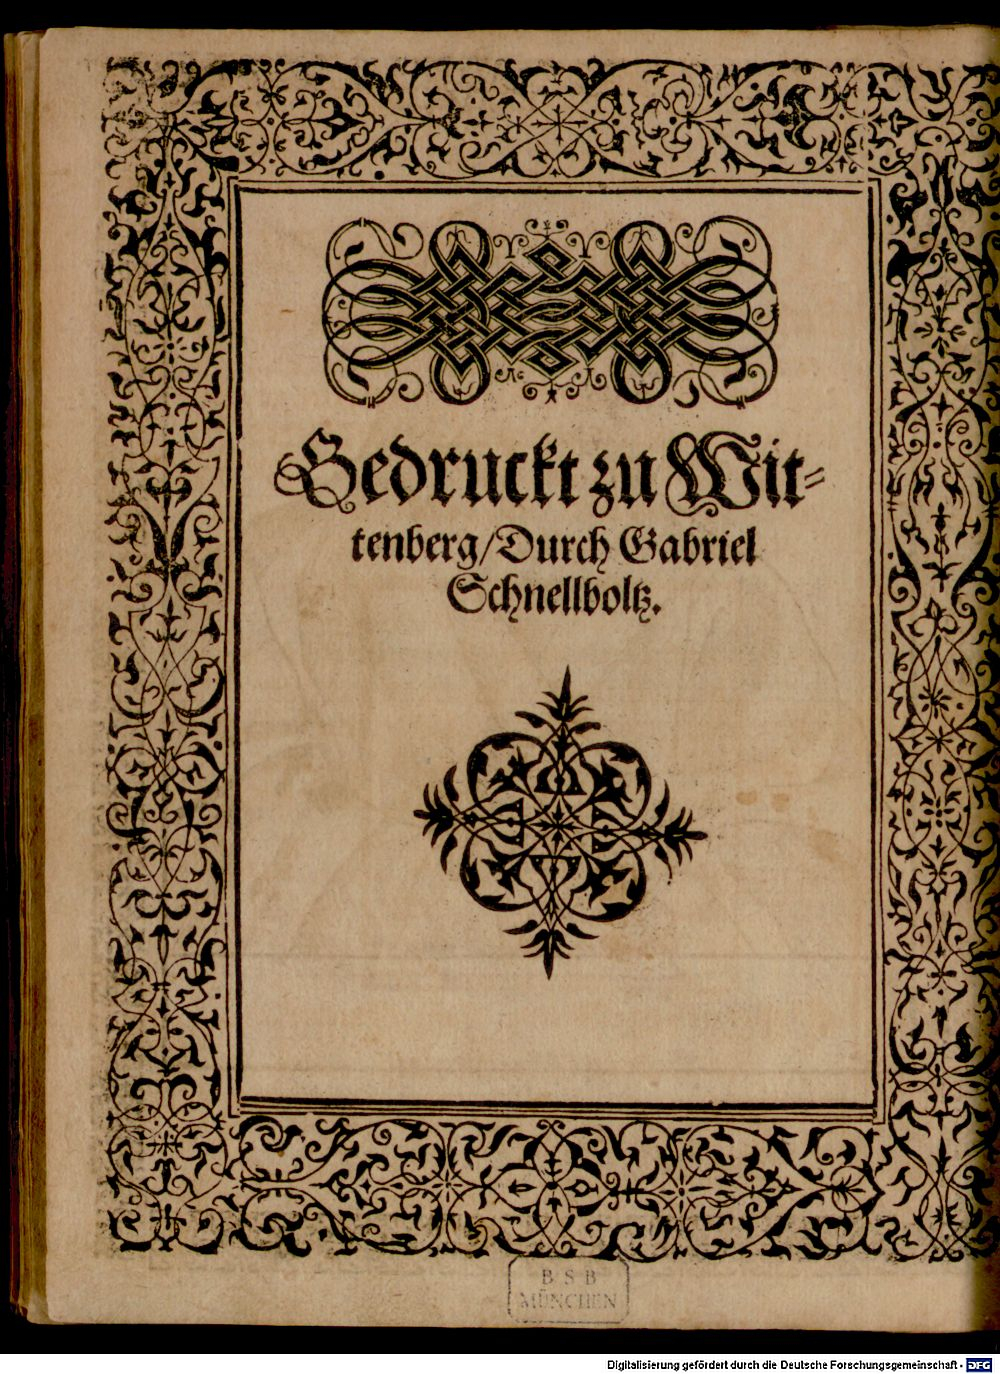 Gedruckt zu Wit⸗
tenberg/Durch Gabriel
Schnellboltz.
B S B
MÜNCHEN
Digitalisierung gefördert durch die Deutsche Forschungsgemeinschaft - DFG